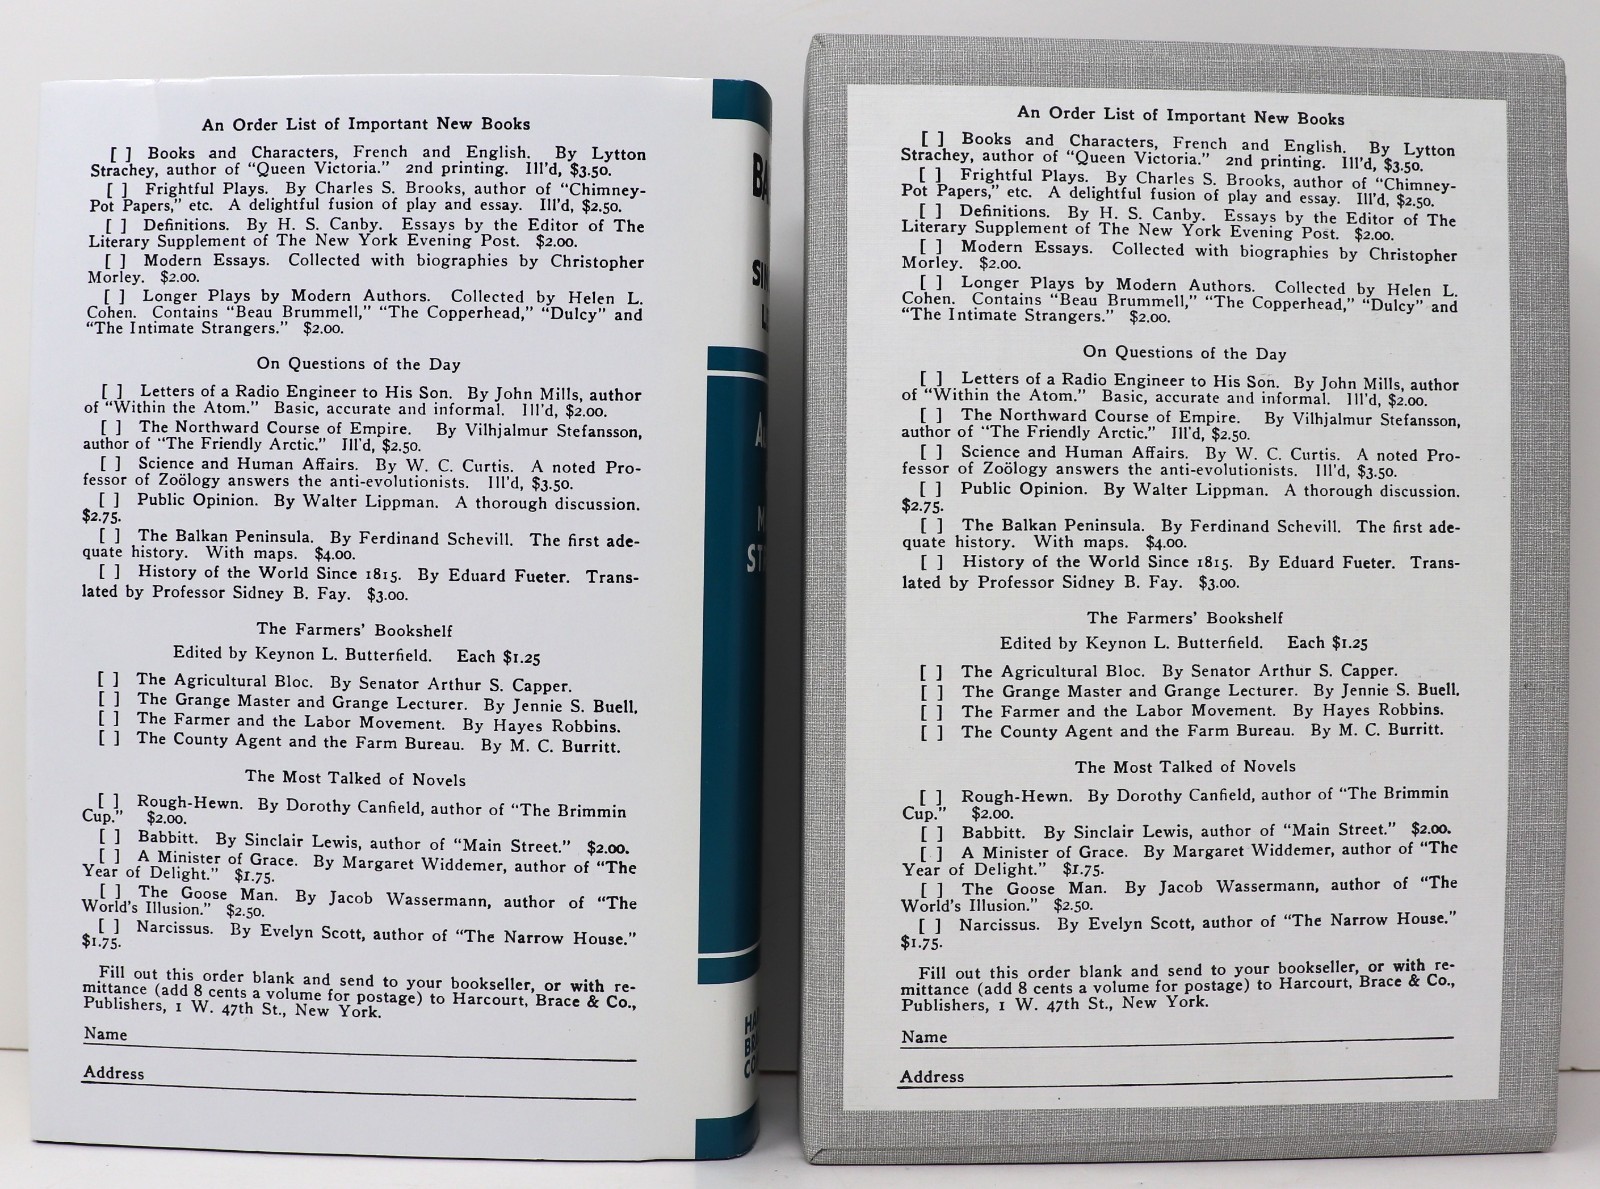 An Order List of Important New Books
[ ] Books and Characters, French and English. By Lytton
Strachey, author of "Queen Victoria." 2nd printing. Ill'd, $3.50.
[ ] Frightful Plays. By Charles S. Brooks, author of "Chimney-
Pot Papers," etc. A delightful fusion of play and essay. Ill'd, $2.50.
[ ] Definitions. By H. S. Canby. Essays by the Editor of The
Literary Supplement of The New York Evening Post. $2.00.
[ ] Modern Essays. Collected with biographies by Christopher
Morley. $2.00.
[ ] Longer Plays by Modern Authors. Collected by Helen L.
Cohen. Contains "Beau Brummell," "The Copperhead," "Dulcy" and
"The Intimate Strangers." $2.00.
On Questions of the Day
[ ] Letters of a Radio Engineer to His Son. By John Mills, author
of "Within the Atom." Basic, accurate and informal. Ill'd, $2.00.
[ ] The Northward Course of Empire. By Vilhjalmur Stefansson,
author of "The Friendly Arctic." Ill'd, $2.50.
[ ] Science and Human Affairs. By W. C. Curtis. A noted Pro-
fessor of Zoölogy answers the anti-evolutionists. Ill'd, $3.50.
[ ] Public Opinion. By Walter Lippman. A thorough discussion.
$2.75.
[ ] The Balkan Peninsula. By Ferdinand Schevill. The first ade-
quate history. With maps. $4.00.
[ ] History of the World Since 1815. By Eduard Fueter. Trans-
lated by Professor Sidney B. Fay. $3.00.
The Farmers' Bookshelf
Edited by Keynon L. Butterfield. Each $1.25
[ ] The Agricultural Bloc. By Senator Arthur S. Capper.
[ ] The Grange Master and Grange Lecturer. By Jennie S. Buell.
[ ] The Farmer and the Labor Movement. By Hayes Robbins.
[ ] The County Agent and the Farm Bureau. By M. C. Burritt.
The Most Talked of Novels
[ ] Rough-Hewn. By Dorothy Canfield, author of "The Brimmin
Cup." $2.00.
[ ] Babbitt. By Sinclair Lewis, author of "Main Street." $2.00.
[ ] A Minister of Grace. By Margaret Widdemer, author of "The
Year of Delight." $1.75.
[ ] The Goose Man. By Jacob Wassermann, author of "The
World's Illusion." $2.50.
[ ] Narcissus. By Evelyn Scott, author of "The Narrow House."
$1.75.
Fill out this order blank and send to your bookseller, or with re-
mittance (add 8 cents a volume for postage) to Harcourt, Brace & Co.,
Publishers, 1 W. 47th St., New York.
Name
Address
An Order List of Important New Books
[ ] Books and Characters, French and English. By Lytton
Strachey, author of "Queen Victoria." 2nd printing. Ill'd, $3.50.
[ ] Frightful Plays. By Charles S. Brooks, author of "Chimney-
Pot Papers," etc. A delightful fusion of play and essay. Ill'd, $2.50.
[ ] Definitions. By H. S. Canby. Essays by the Editor of The
Literary Supplement of The New York Evening Post. $2.00.
[ ] Modern Essays. Collected with biographies by Christopher
Morley. $2.00.
[ ] Longer Plays by Modern Authors. Collected by Helen L.
Cohen. Contains "Beau Brummell," "The Copperhead," "Dulcy" and
"The Intimate Strangers." $2.00.
On Questions of the Day
[ ] Letters of a Radio Engineer to His Son. By John Mills, author
of "Within the Atom." Basic, accurate and informal. Ill'd, $2.00.
[ ] The Northward Course of Empire. By Vilhjalmur Stefansson,
author of "The Friendly Arctic." Ill'd, $2.50.
[ ] Science and Human Affairs. By W. C. Curtis. A noted Pro-
fessor of Zoölogy answers the anti-evolutionists. Ill'd, $3.50.
[ ] Public Opinion. By Walter Lippman. A thorough discussion.
$2.75.
[ ] The Balkan Peninsula. By Ferdinand Schevill. The first ade-
quate history. With maps. $4.00.
[ ] History of the World Since 1815. By Eduard Fueter. Trans-
lated by Professor Sidney B. Fay. $3.00.
The Farmers' Bookshelf
Edited by Keynon L. Butterfield. Each $1.25
[ ] The Agricultural Bloc. By Senator Arthur S. Capper.
[ ] The Grange Master and Grange Lecturer. By Jennie S. Buell.
[ ] The Farmer and the Labor Movement. By Hayes Robbins.
[ ] The County Agent and the Farm Bureau. By M. C. Burritt.
The Most Talked of Novels
[ ] Rough-Hewn. By Dorothy Canfield, author of "The Brimmin
Cup." $2.00.
[ ] Babbitt. By Sinclair Lewis, author of "Main Street." $2.00.
[ ] A Minister of Grace. By Margaret Widdemer, author of "The
Year of Delight." $1.75.
[ ] The Goose Man. By Jacob Wassermann, author of "The
World's Illusion." $2.50.
[ ] Narcissus. By Evelyn Scott, author of "The Narrow House."
$1.75.
Fill out this order blank and send to your bookseller, or with re-
mittance (add 8 cents a volume for postage) to Harcourt, Brace & Co.,
Publishers, 1 W. 47th St., New York.
Name
Address